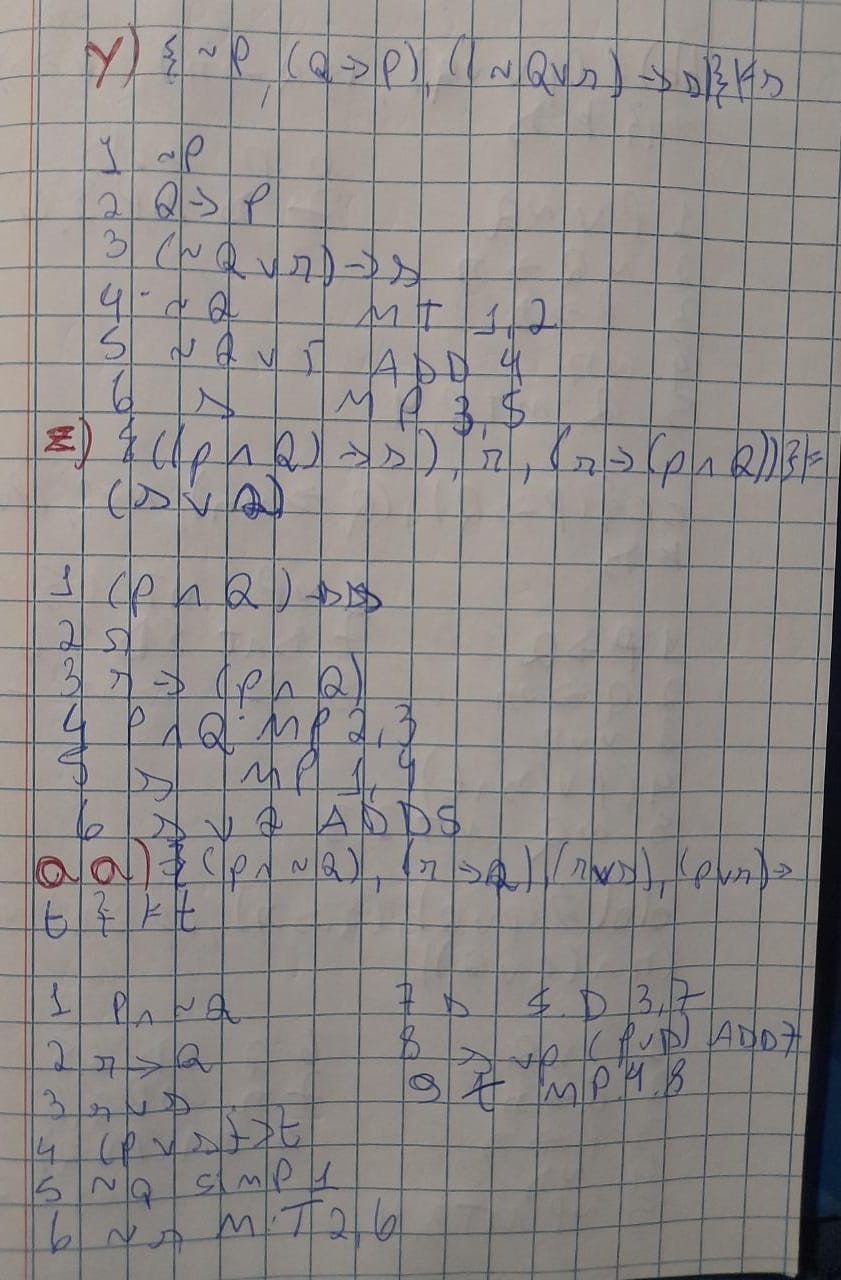 Y) { ~P, (Q → P), ((~Q v r) → s)} ⊢ s
1 ~P
2 Q → P
3 (~Q v r) → s
4 ~Q MT 1,2
5 ~Q v r ADD 4
6 s MP 3,5
Z) {((P ∧ Q) → s), r, (r → (P ∧ Q))} ⊢
(s v Q)
1 (P ∧ Q) → s
2 r
3 r → (P ∧ Q)
4 P ∧ Q MP 2,3
5 s MP 1,4
6 s v Q ADD 5
aa) {(P ∧ ~Q), (r → Q), (r v s), (P v s) →
t} ⊢ t
1 P ∧ ~Q
2 r → Q
3 r v s
4 (P v s) → t
5 ~Q SIMP 1
6 ~r M.T 2,6
7 s S.D 3,7
8 s v P (P v s) ADD 7
9 t MP 4.8